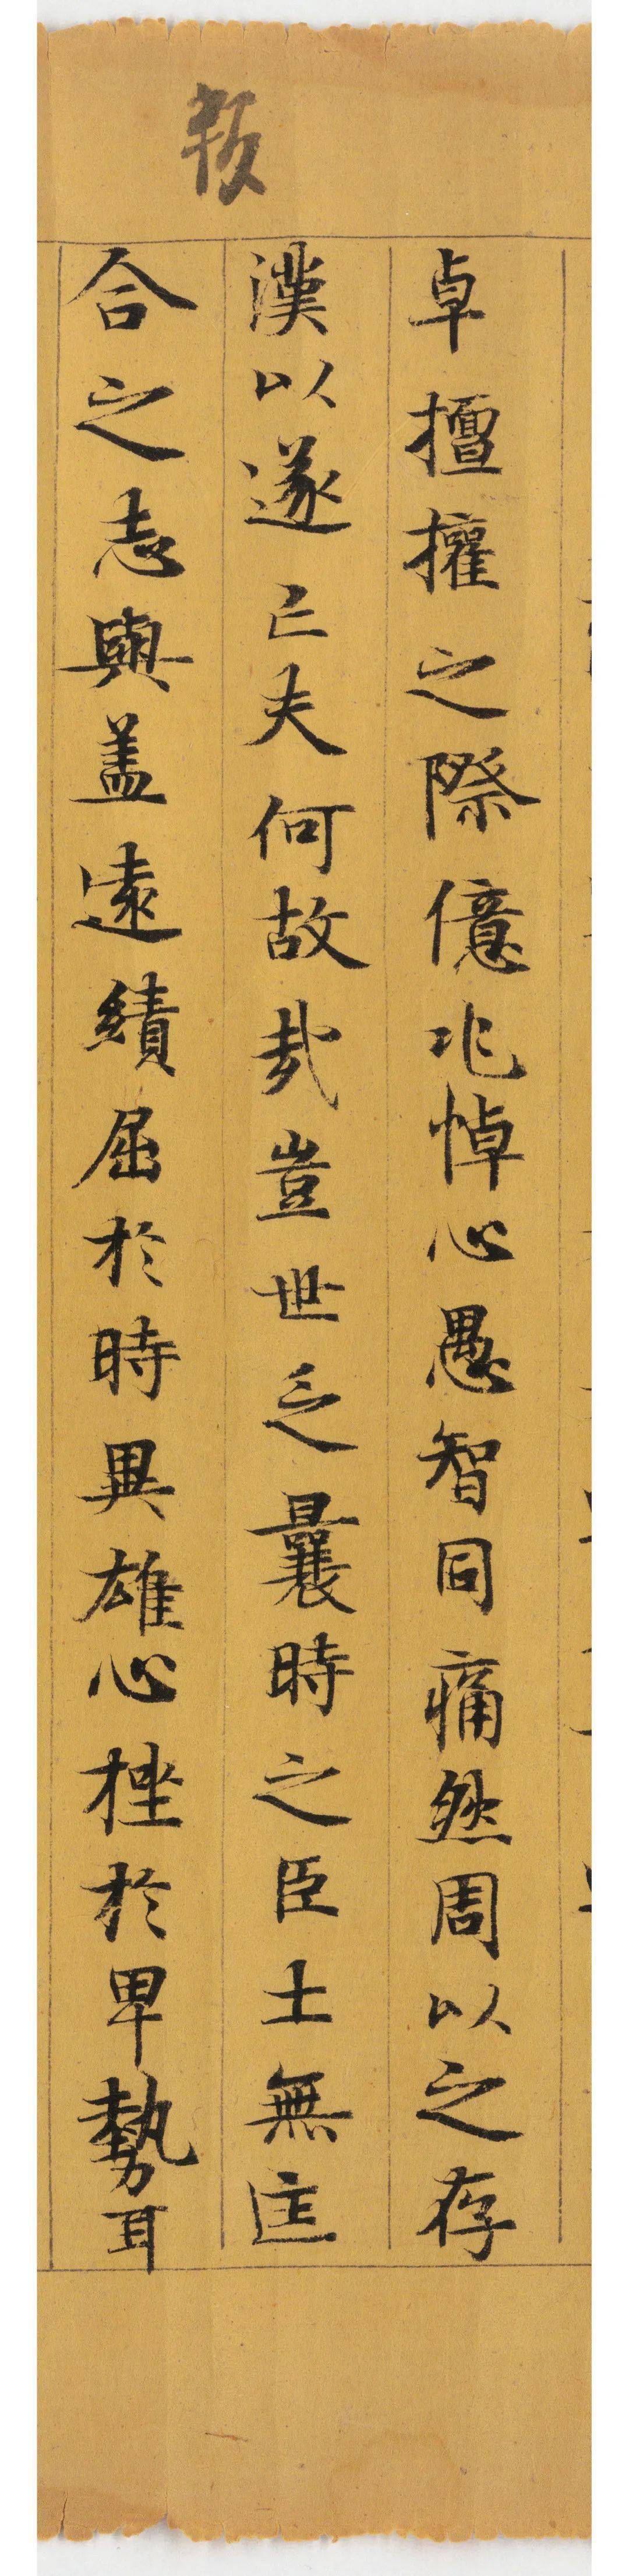 卓擅權之際億兆悼心愚智同痛然周以之存
漢以遂亡夫何故哉豈世乏曩時之臣士無匡
合之志與盖遠績屈於時異雄心挫於卑勢耳